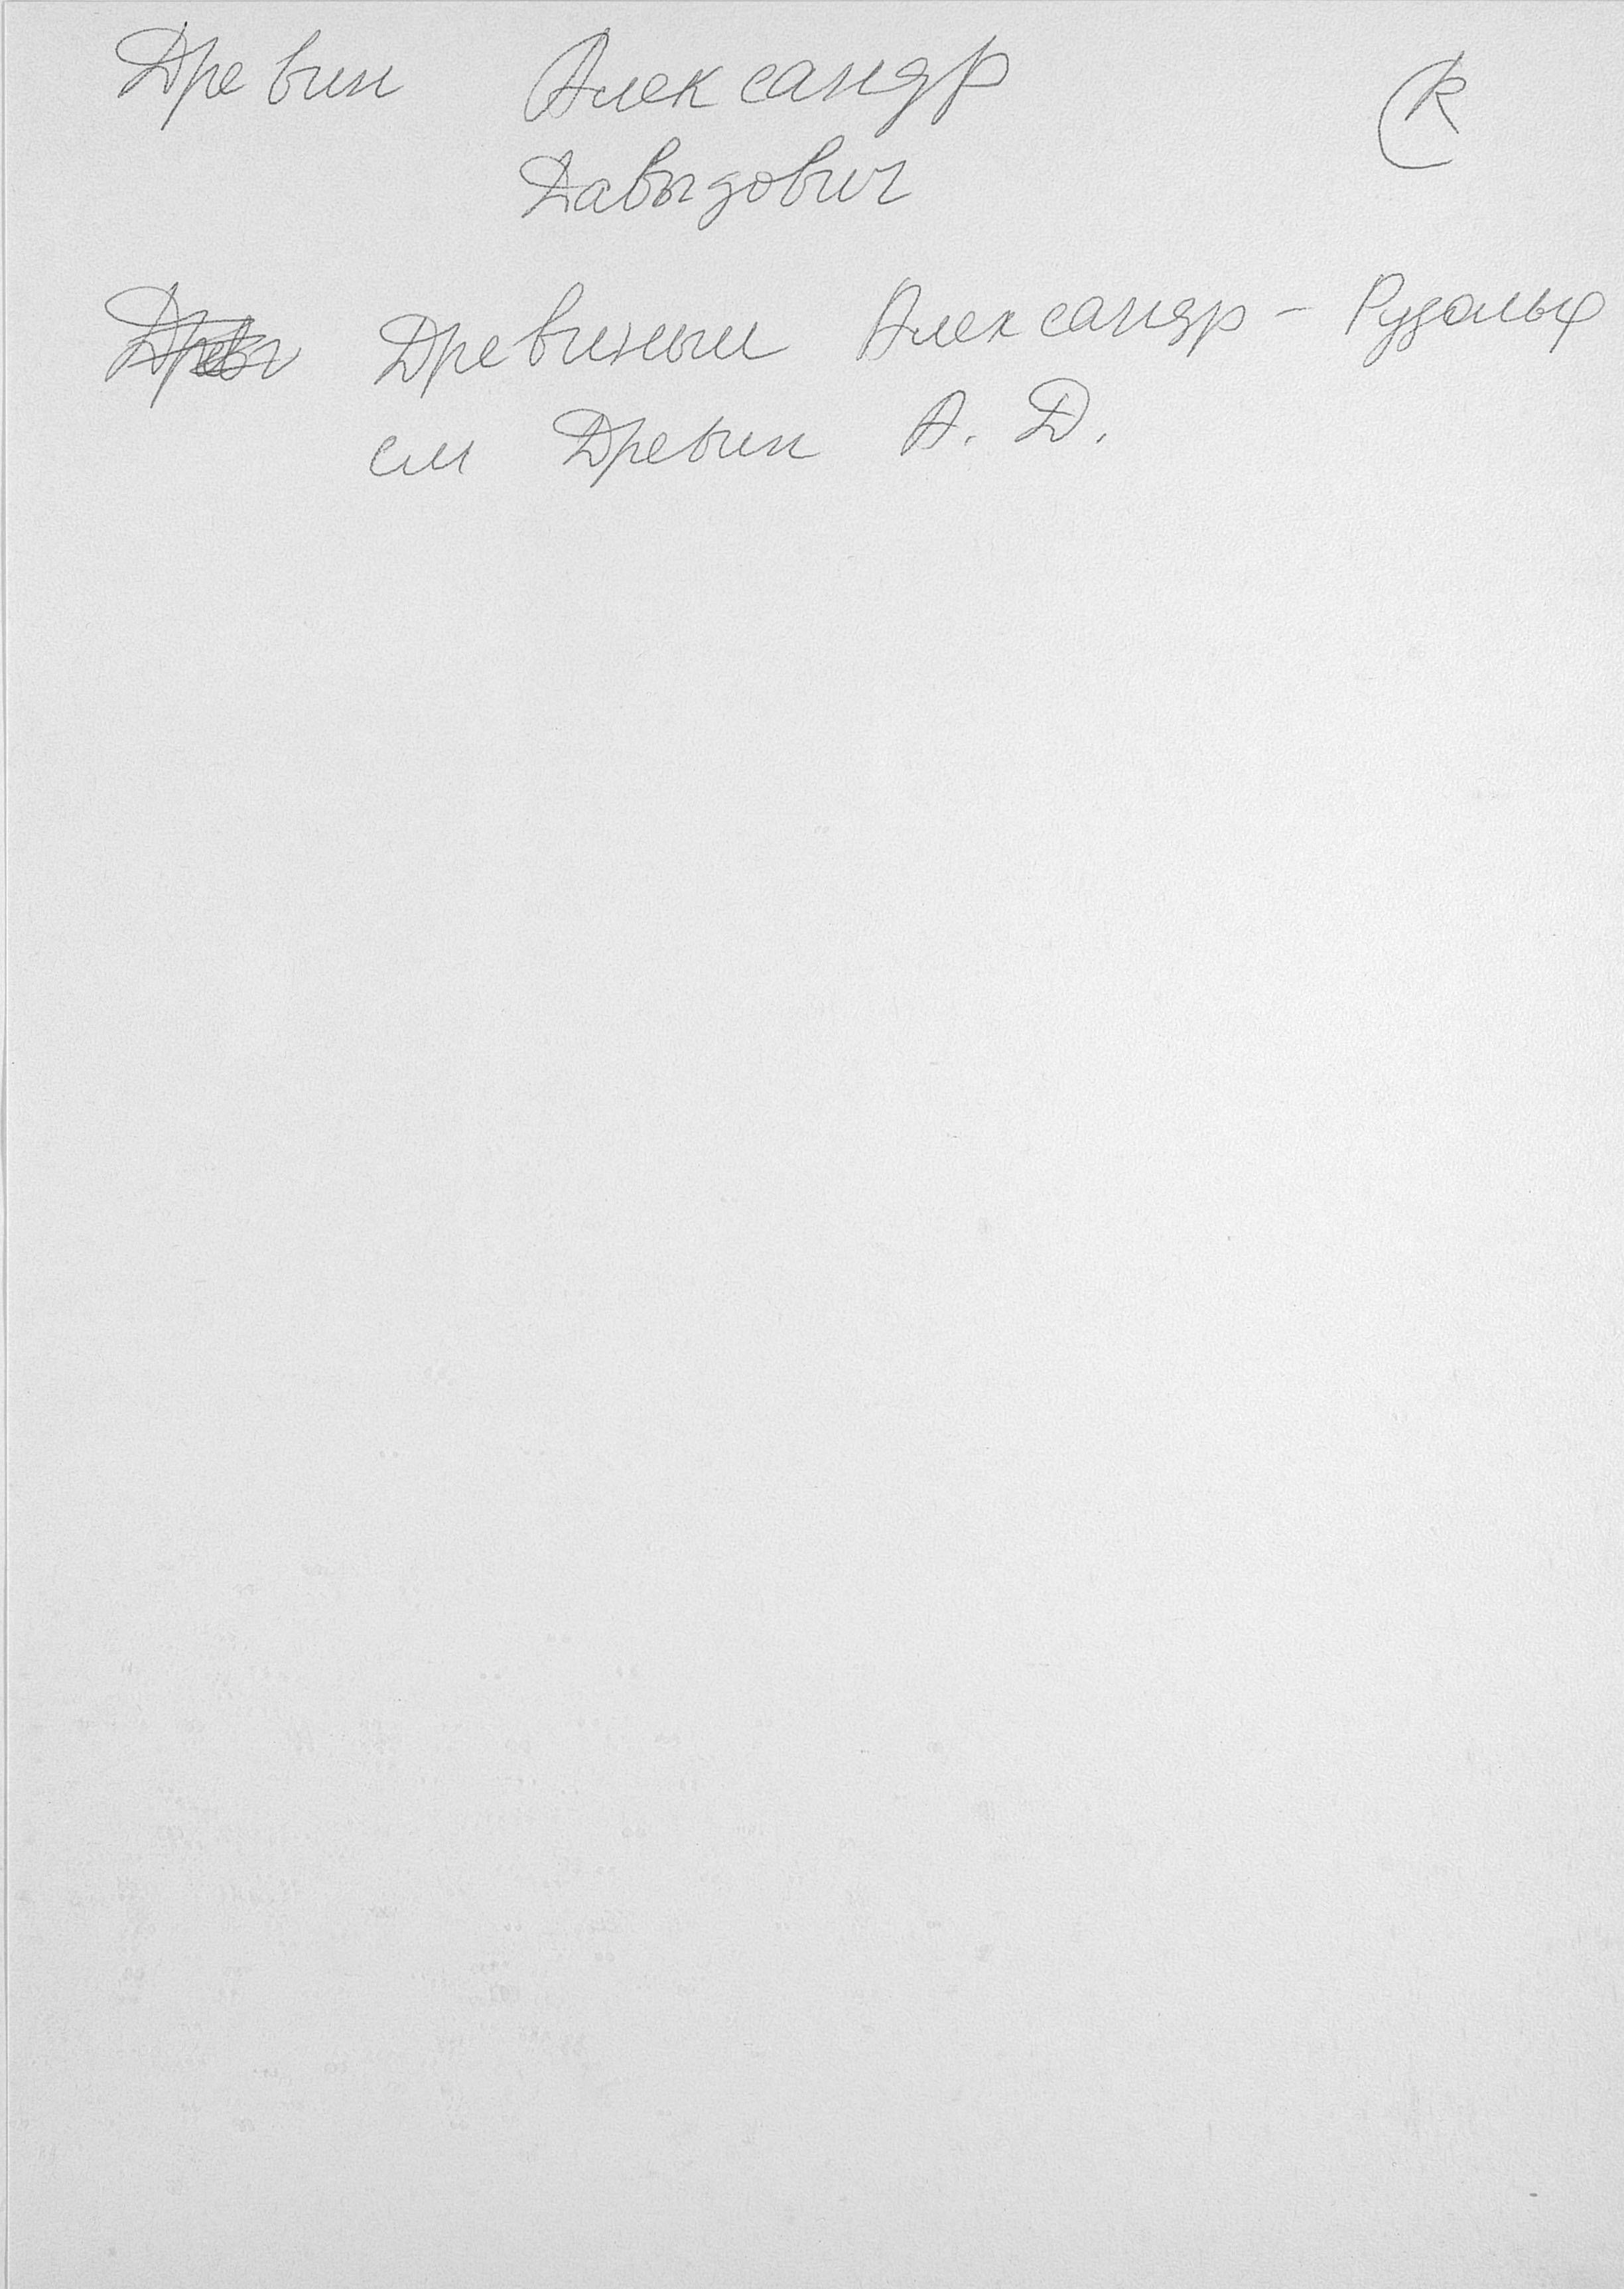 Древин Александр К
Давыдович
Древиньш Александр - Рудольф
см Древин А. Д.